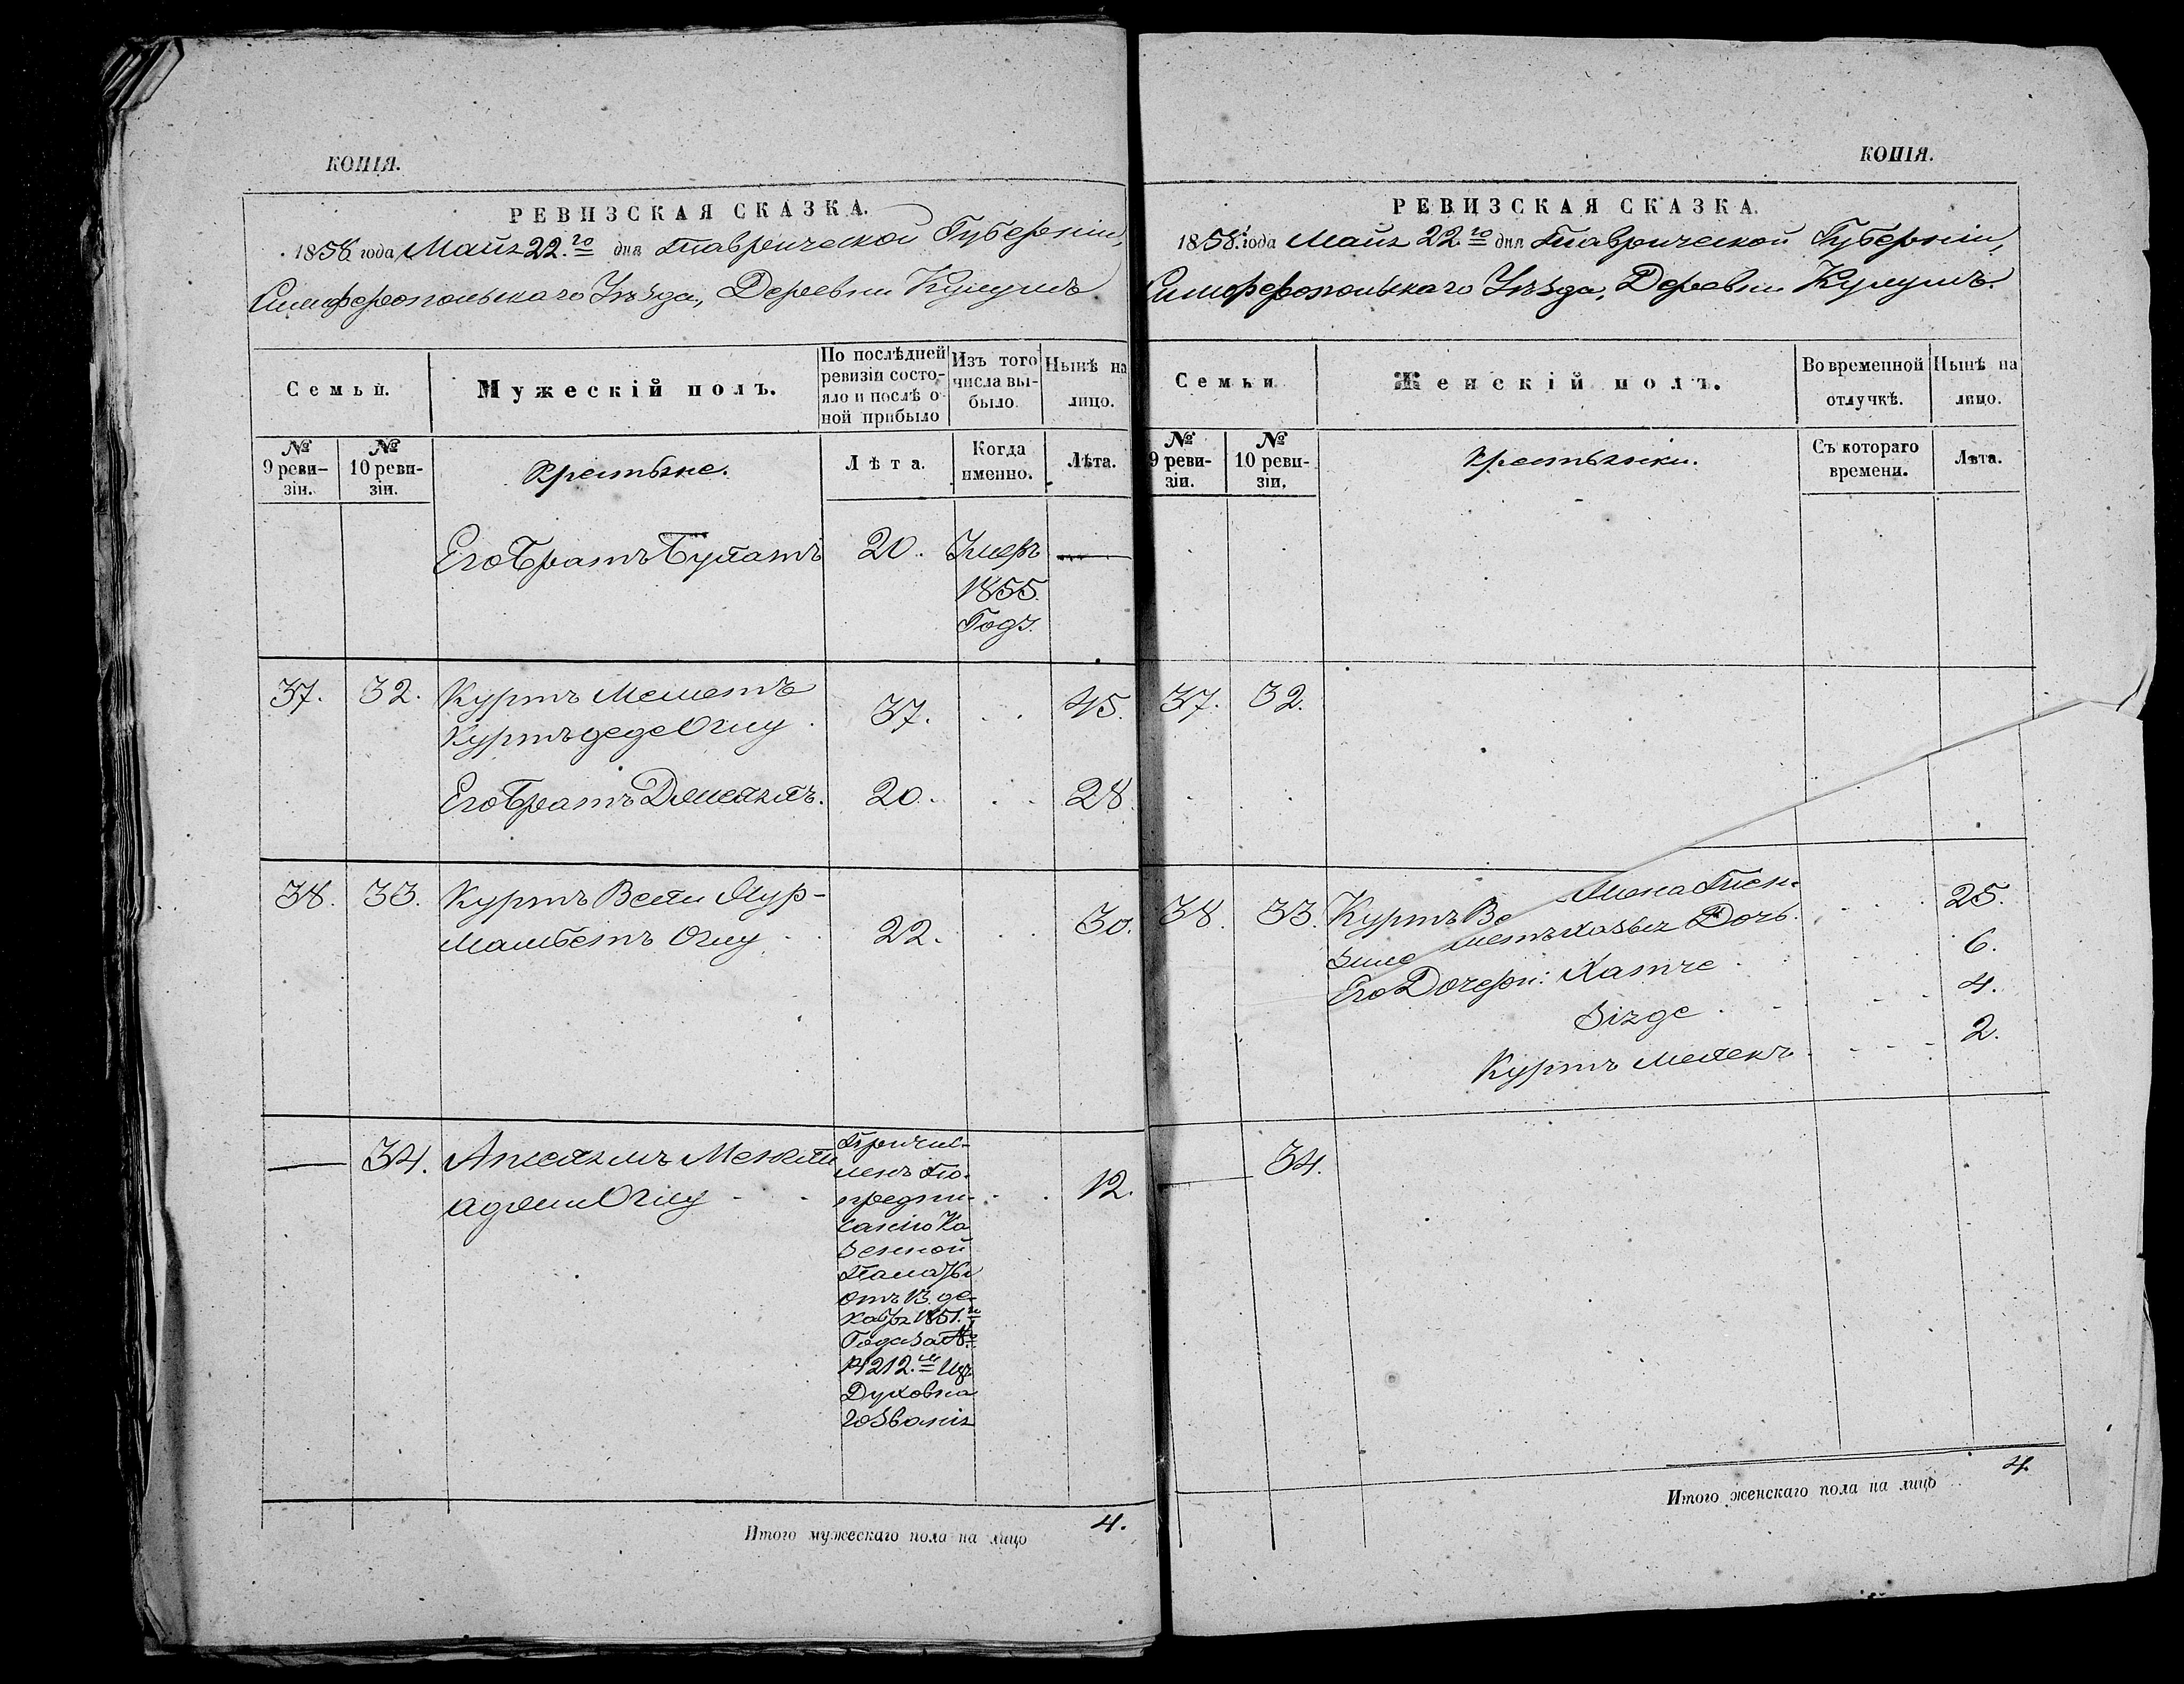 КОПІЯ.
РЕВИЗСКАЯ СКАЗКА.
1858 года Майя 22го дня Таврической Губерніи,
Симферопольскаго Уѣзда, Деревни
Семьи.
Мужескій полъ.
По послѣдней ревизіи состояло и послѣ оной прибыло
Изъ того числа выбыло.
Нынѣ на лицо.
№ 9 ревизіи.
№ 10 ревизіи.
Крестьяне.
Лѣта.
Когда именно.
Лѣта.
Его Братъ Булатъ 20. Умеръ —
1855.
Годъ.
37. 32. Куртъ Меметъ
Куртъ деде Оглу 37. 45.
Его Братъ Джелялъ. 20. 28.
38. 33. Куртъ Вели Нур-
Мамбетъ Оглу 22. 30.
— 34.
Оглу 12.
Причис-
ленъ По
предпи-
санію Ка
зенной
Палаты
отъ 13 де-
кабря 1851.го
Года за №
14212.м Изъ
Духовна
го званія
Итого мужескаго пола на лицо 4.
КОПІЯ.
РЕВИЗСКАЯ СКАЗКА.
1858. года Майя 22го дня Таврической Губерніи,
Симферопольскаго Уѣзда, Деревни
Семьи
Женскій полъ.
Во временной отлучкѣ.
Нынѣ на лицо.
№ 9 ревизіи.
№ 10 ревизіи.
Крестьянки.
Съ котораго времени.
Лѣта.
37. 32.
38. 33. Куртъ Ве Жена 25.
Дочь.
Его Дочери: Хатче 6.
Зізде 4.
Куртъ Мелекъ 2.
— 34.
Итого женскаго пола на лицо 4.